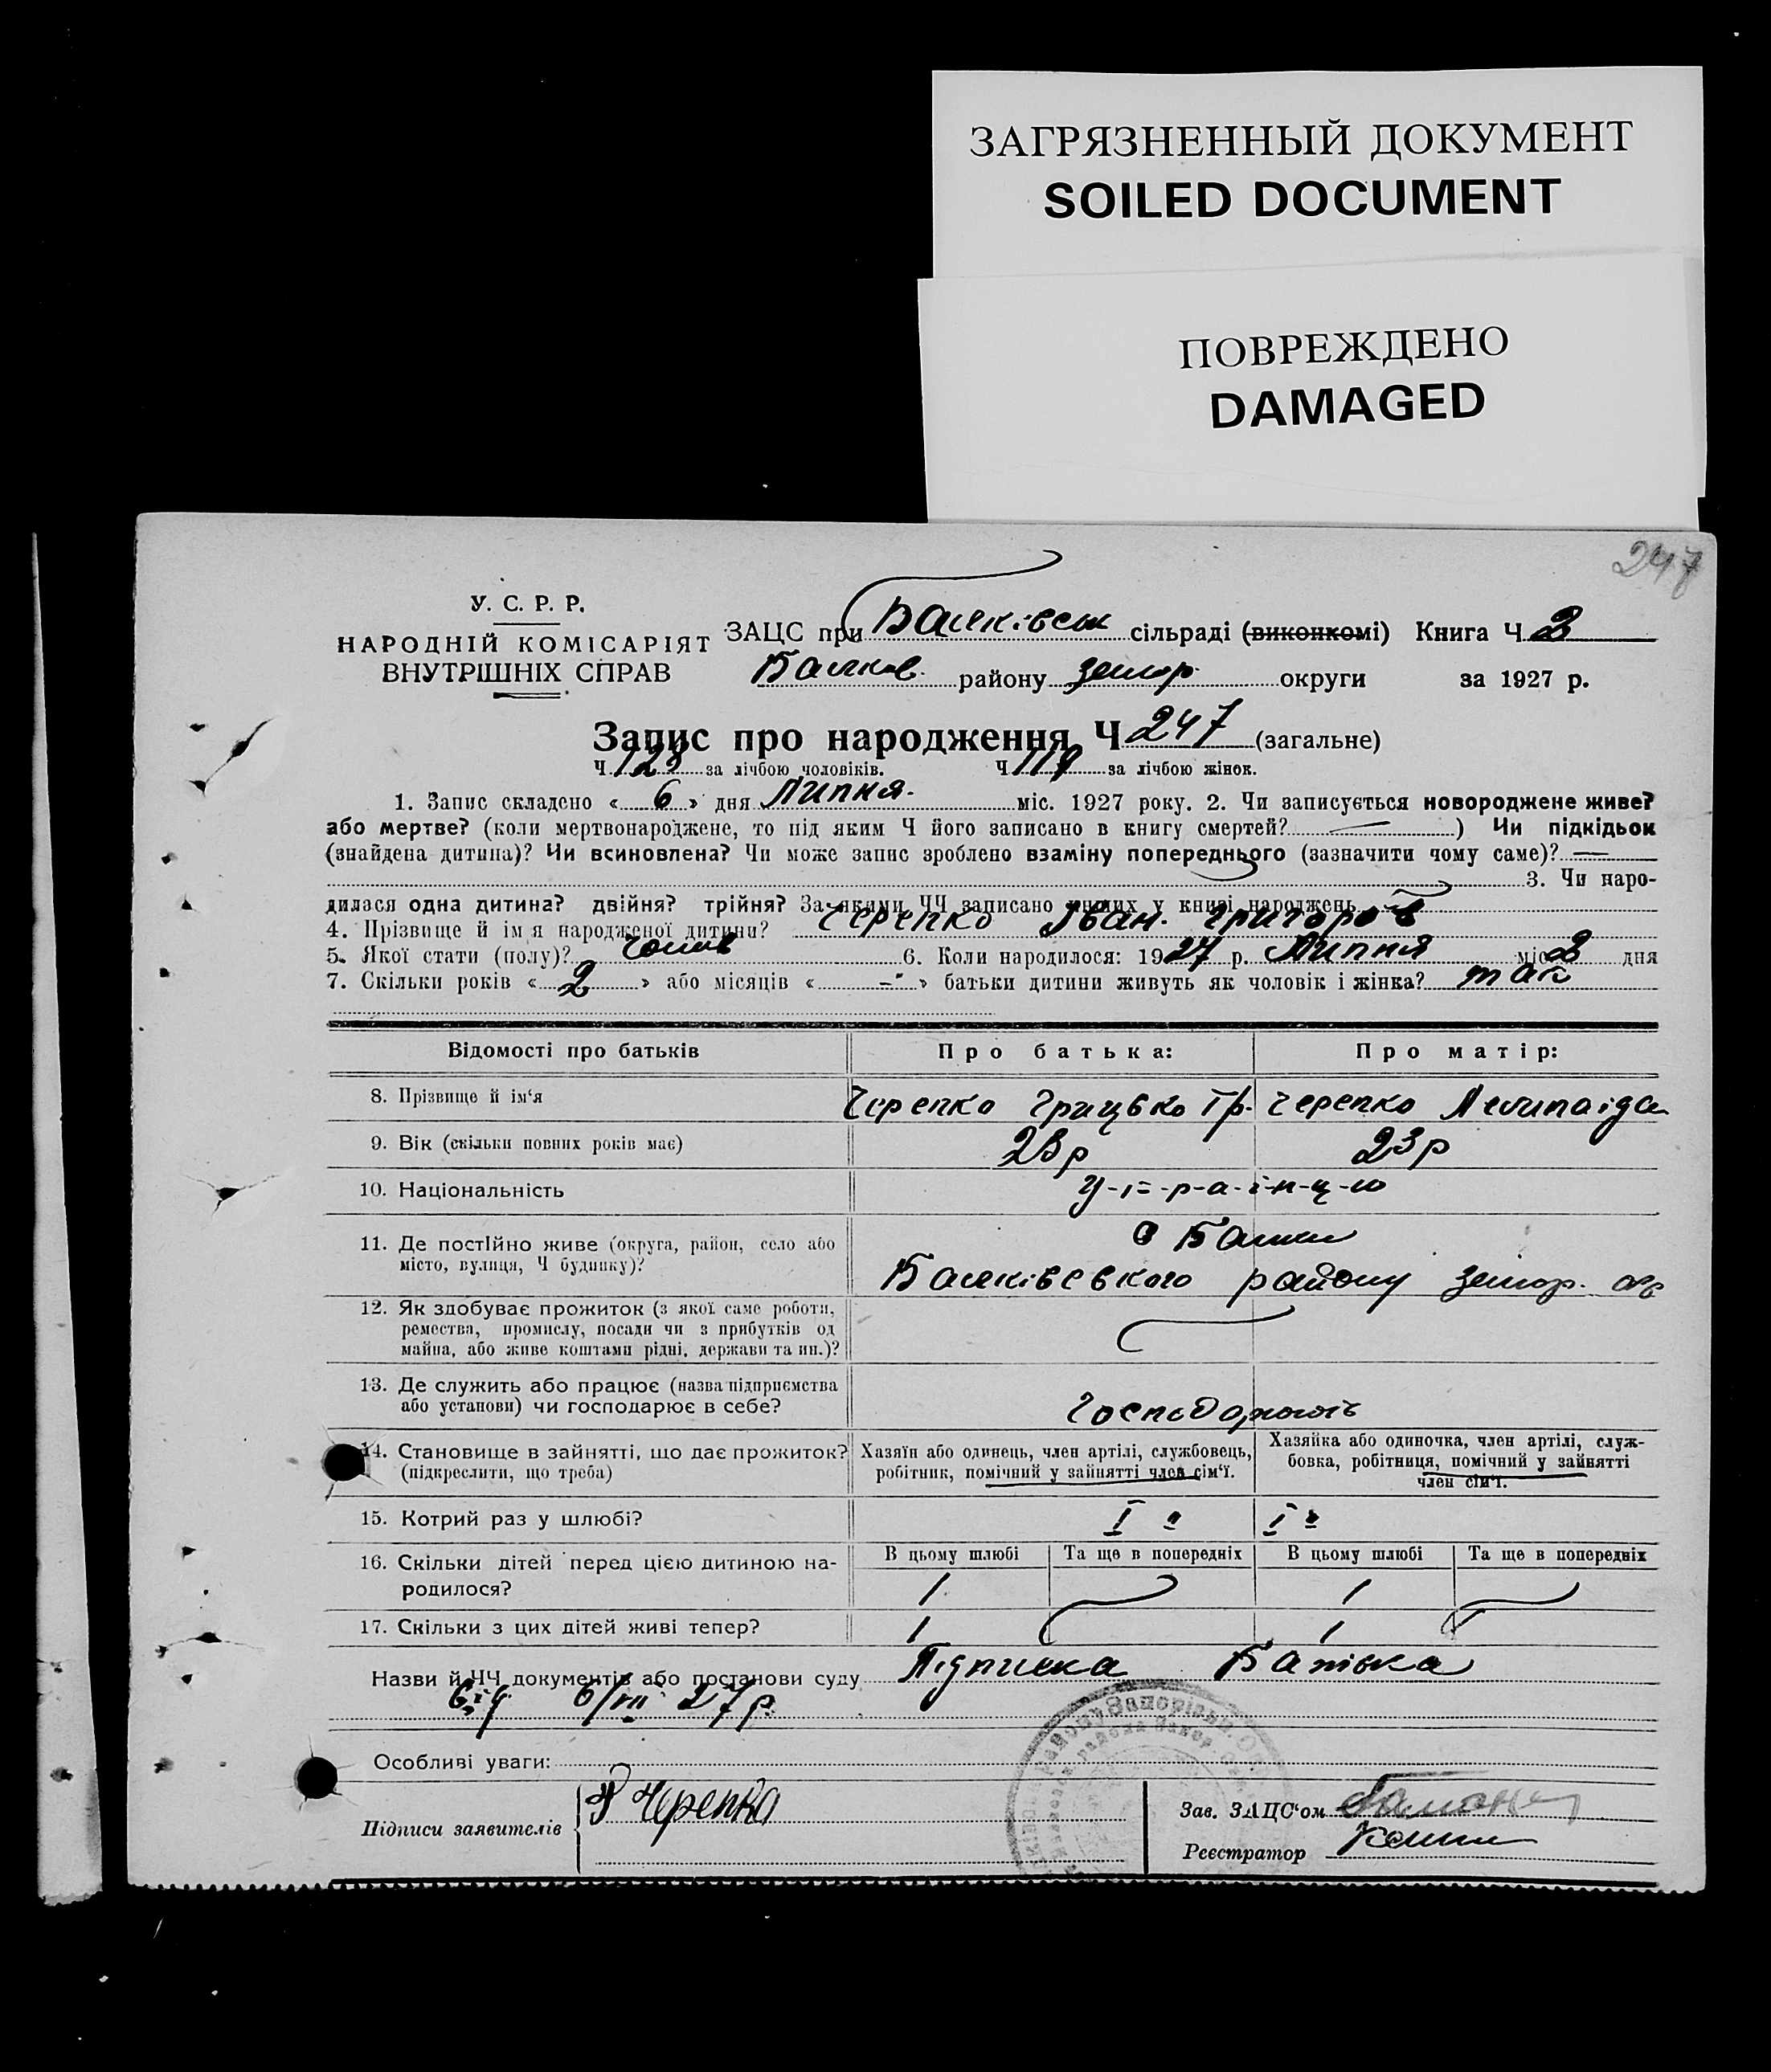 ЗАГРЯЗНЕННЫЙ ДОКУМЕНТ
SOILED DOCUMENT
ПОВРЕЖДЕНО
DAMAGED
247
У. С. Р. Р.
НАРОДНІЙ КОМІСАРІЯТ
ВНУТРІШНІХ СПРАВ
ЗАЦС при Балківськ сільраді (виконкомі) Книга Ч 2
Балков. району Запор. округи за 1927 р.
Запис про народження Ч 247 (загальне)
Ч 128 за лічбою чоловіків. Ч 119 за лічбою жінок.
1. Запис складено « 6 » дня Липня міс. 1927 року. 2. Чи записується новороджене живе?
або мертве? (коли мертвонароджене, то під яким Ч його записано в книгу смертей? —) Чи підкідьок
(знайдена дитина)? Чи всиновлена? Чи може запис зроблено взаміну попереднього (зазначити чому саме)? —
3. Чи наро-
дилася одна дитина? двійня? трійня? За якими ЧЧ записано инших у книзі народжень
4. Прізвище й ім'я народженої дитини? Черепко Іван Григоров
5. Якої стати (полу)? чолов 6. Коли народилося: 1927 р. Липня міс 2 дня
7. Скільки років « 2 » або місяців « -"- » батьки дитини живуть як чоловік і жінка? так
Відомості про батьків Про батька: Про матір:
8. Прізвище й ім'я Черепко Грицько Гр. Черепко
9. Вік (скільки повних років має) 23 р 23 р
10. Національність У-к-р-а-ї-н-ц-ю
11. Де постійно живе (округа, район, село або
місто, вулиця, Ч будинку)? с Балки
Балківського району Запор. окр
12. Як здобуває прожиток (з якої саме роботи,
ремества, промислу, посади чи з прибутків од
майна, або живе коштами рідні, держави та ин.)?
13. Де служить або працює (назва підприємства
або установи) чи господарює в себе?
14. Становище в зайнятті, що дає прожиток?
(підкреслити, що треба)
Хазяїн або одинець, член артілі, службовець,
робітник, помічний у зайнятті член сім'ї.
Хазяйка або одиночка, член артілі, служ-
бовка, робітниця, помічний у зайнятті
член сім'ї.
15. Котрий раз у шлюбі? І й І й
16. Скільки дітей перед цією дитиною на-
родилося?
В цьому шлюбі Та ще в попередніх В цьому шлюбі Та ще в попередніх
1 1
17. Скільки з цих дітей живі тепер? 1 1
Назви й ЧЧ документів або постанови суду Підписка Батька
від 6/VII 27 р.
Особливі уваги:
Підписи заявителів Черепко
Зав. ЗАЦС'ом
Реєстратор